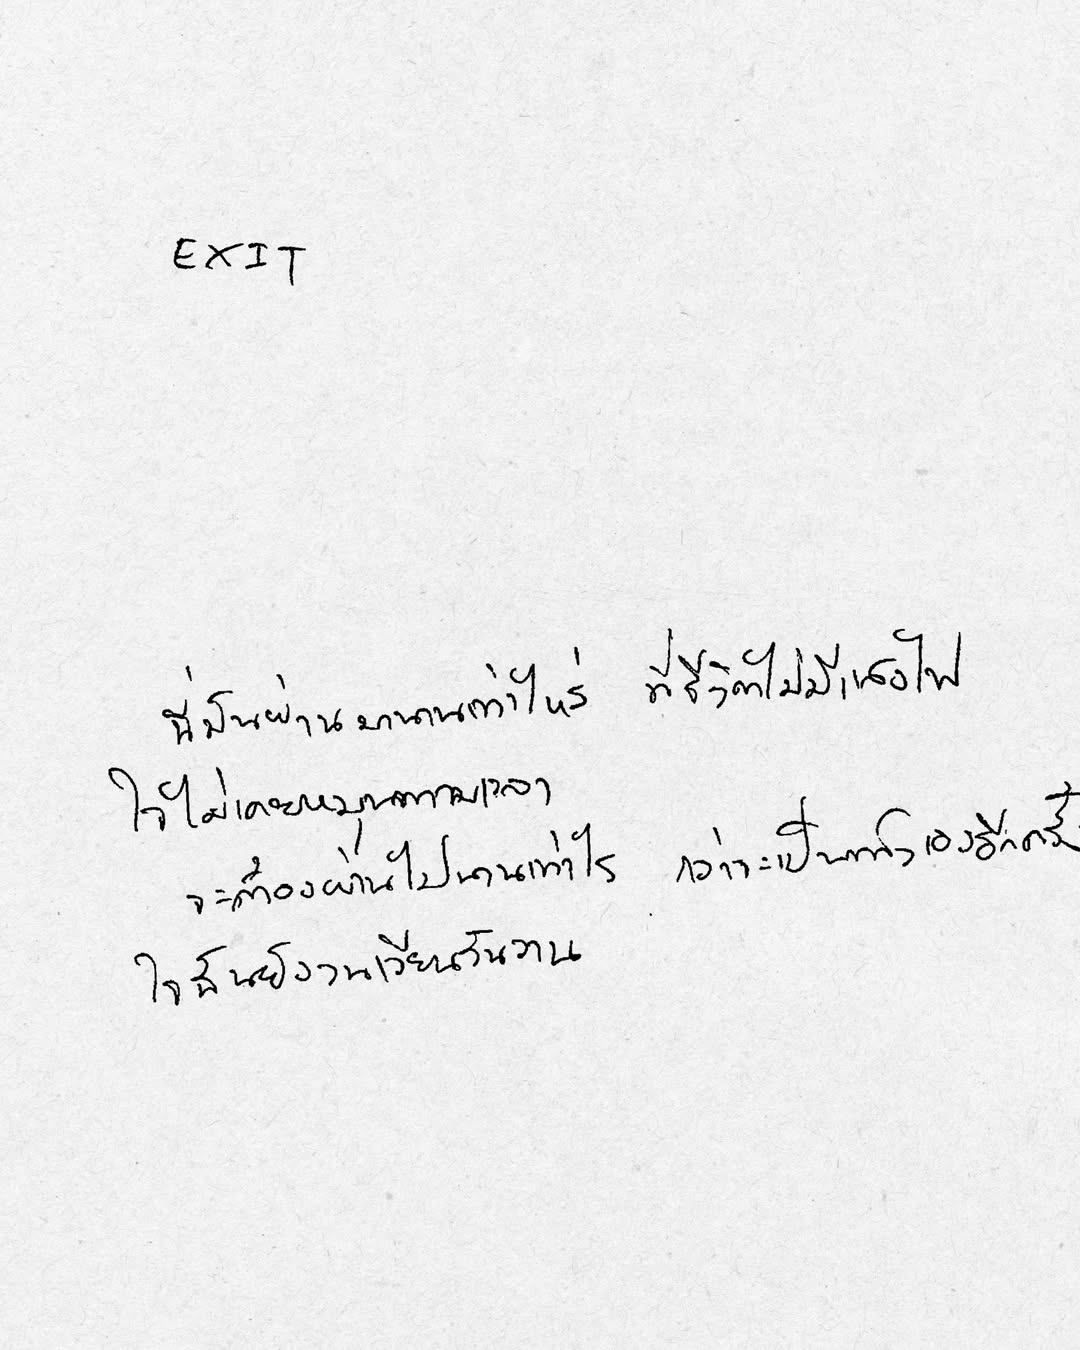 EXIT
นี่มันผ่านมานานเท่าไหร่ ที่ชีวิตไม่มีแสงไฟ
ใจไม่เคยหมุนตามเวลา
จะต้องผ่านไปนานเท่าไร กว่าจะเป็นตัวเองอีกครั้ง
ใจฉันยังวนเวียนวันวาน